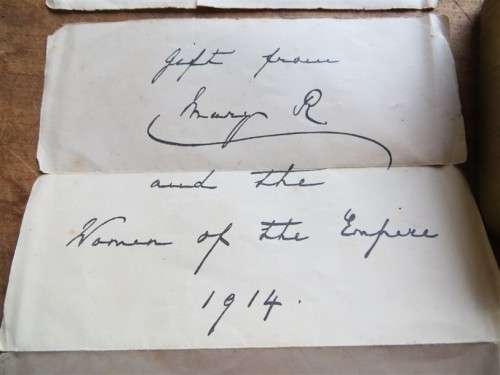 Gift from
Mary R
and the
Women of the Empire
1914.